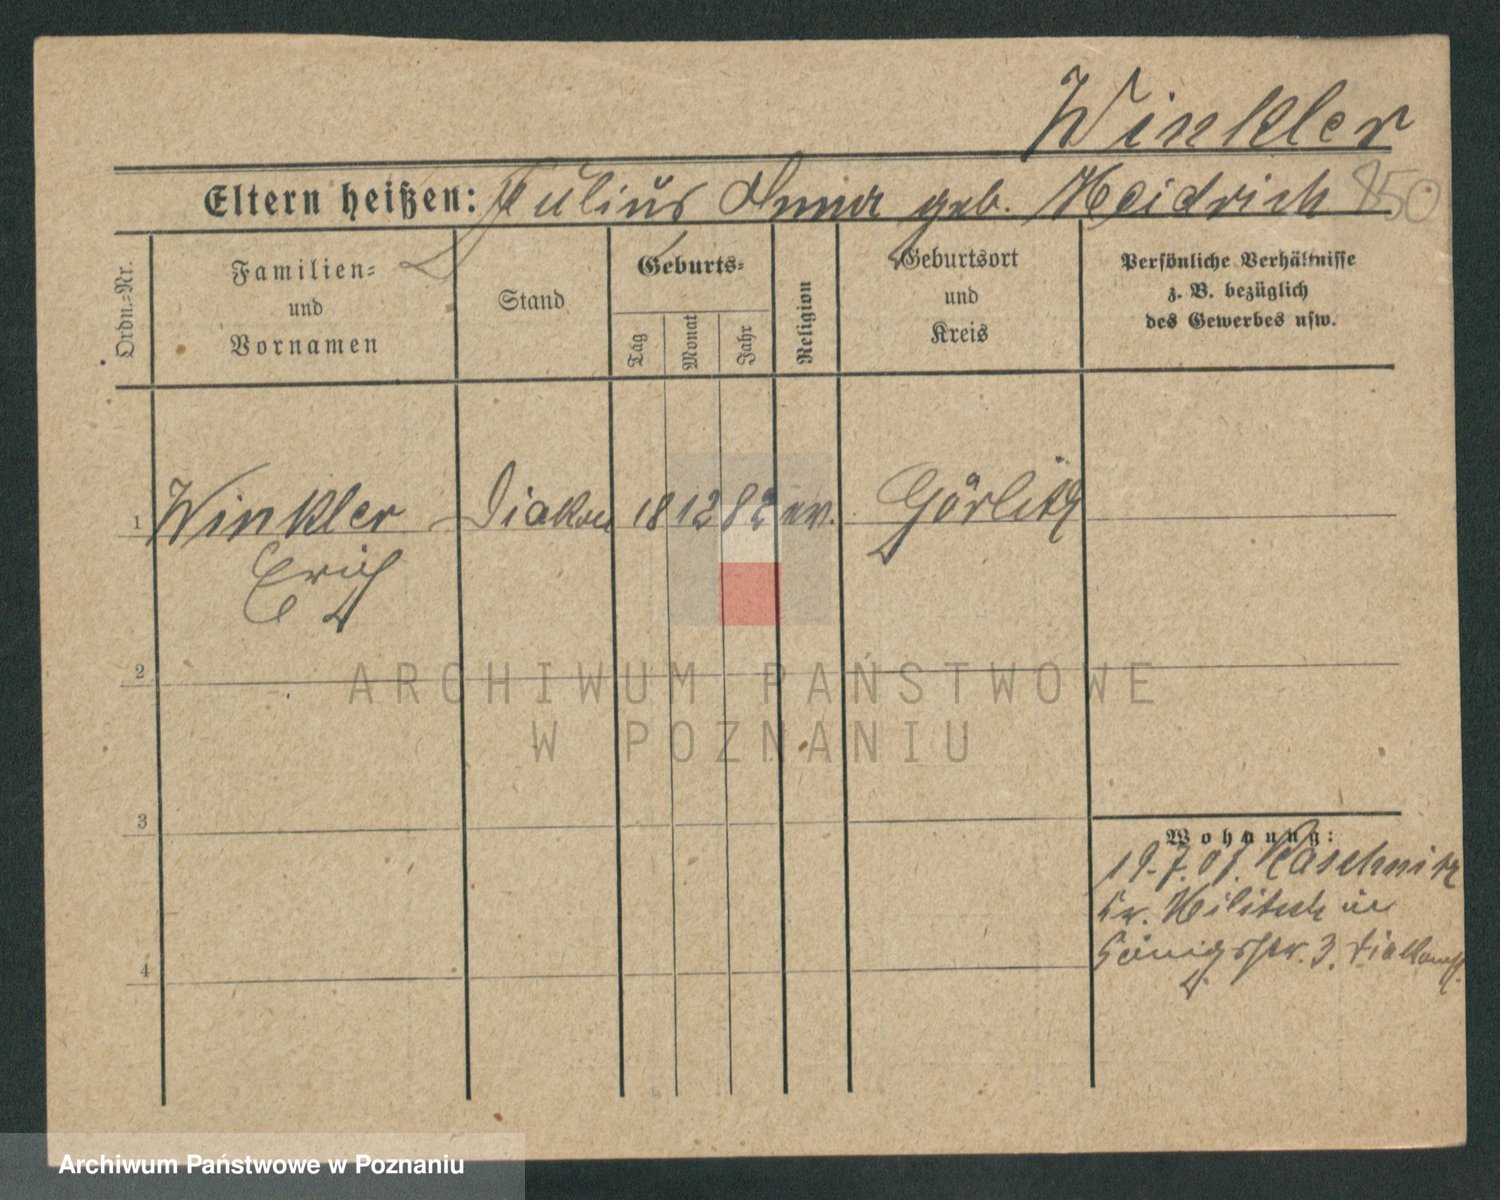 Winkler
Eltern heißen: Julius Anna geb. Heidrich 850
Ordn.=Nr.
Familien=
und
Vornamen
Stand
Geburts=
Tag
Monat
Jahr
Religion
Geburtsort
und
Kreis
Persönliche Verhältnisse
z. B. bezüglich
des Gewerbes usw.
1 Winkler Diakon 18 12 82 ev. Görlitz
Erich
2
ARCHIWUM PAŃSTWOWE
W POZNANIU
3
Wohnung:
19.7.07.
Kr. Militsch in
Königsstr. 3.
4
Archiwum Państwowe w Poznaniu